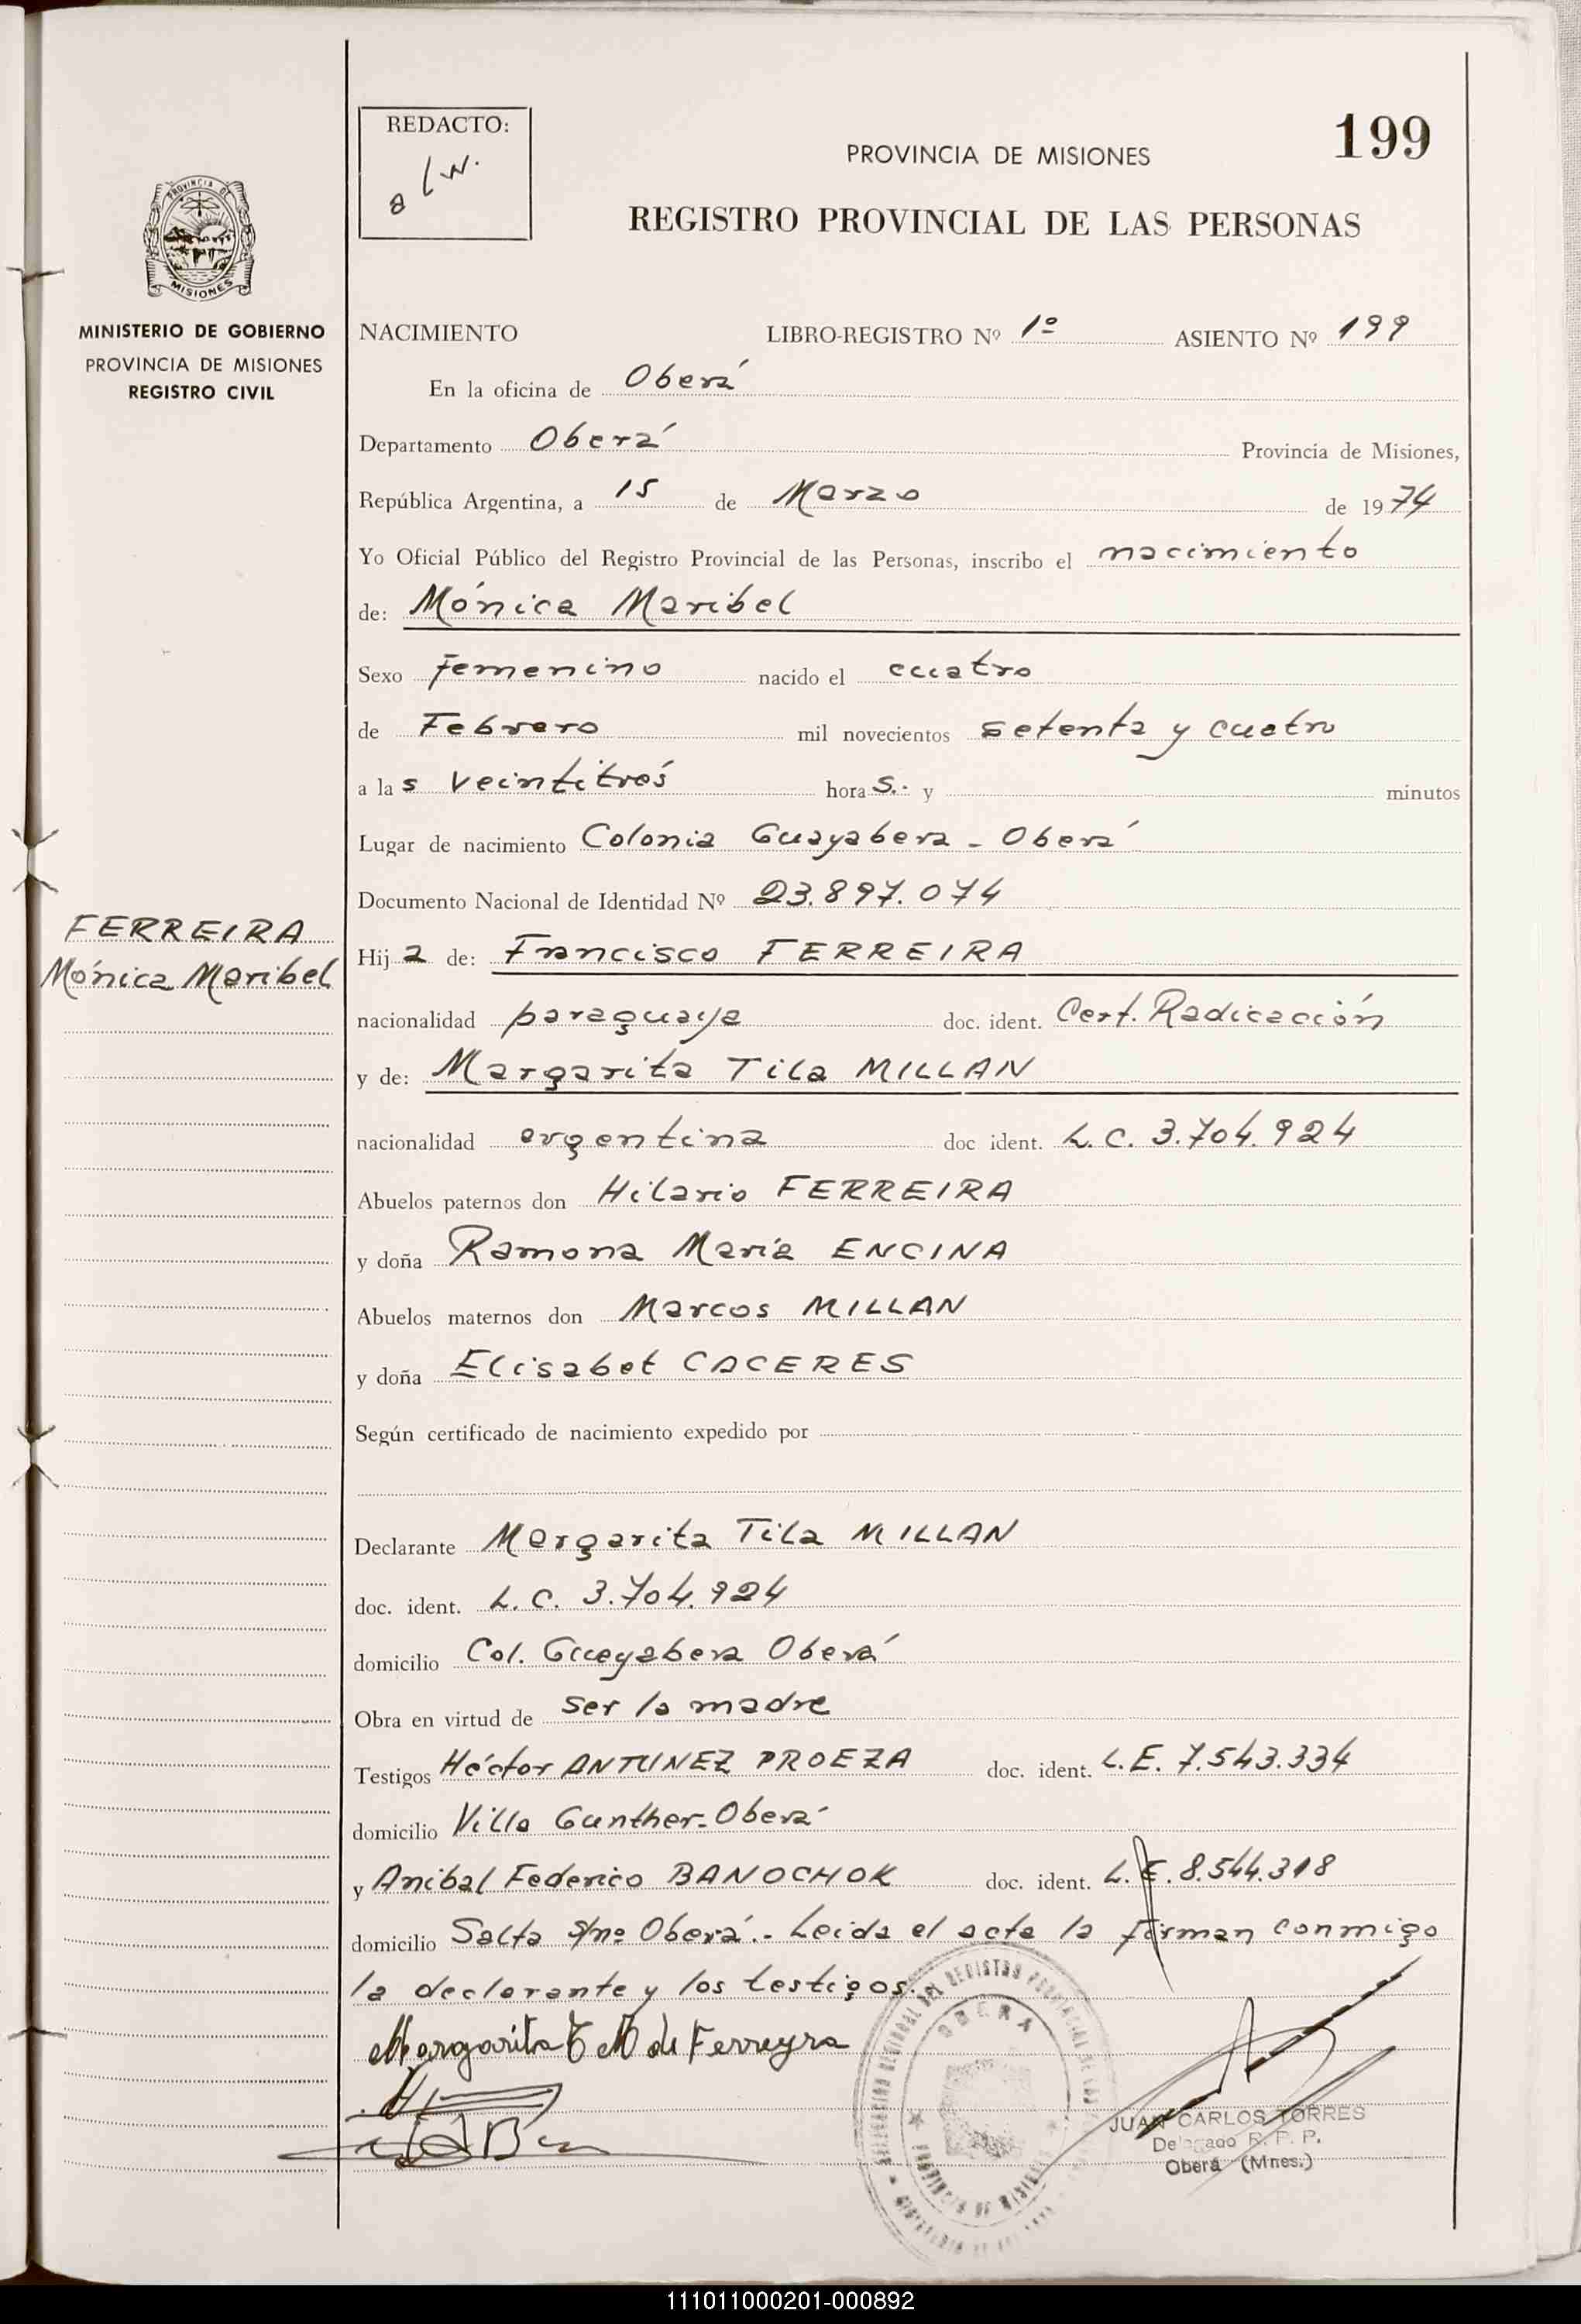 REDACTO:
PROVINCIA DE MISIONES
199
REGISTRO PROVINCIAL DE LAS PERSONAS
PROVINCIA DE
MISIONES
MINISTERIO DE GOBIERNO
PROVINCIA DE MISIONES
REGISTRO CIVIL
NACIMIENTO LIBRO-REGISTRO Nº 1º ASIENTO Nº 199
En la oficina de Oberá
Departamento Oberá Provincia de Misiones,
República Argentina, a 15 de Marzo de 1974
Yo Oficial Público del Registro Provincial de las Personas, inscribo el nacimiento
de: Mónica Maribel
Sexo femenino nacido el cuatro
de Febrero mil novecientos setenta y cuatro
a las veintitrés horas.- y minutos
Lugar de nacimiento Colonia Guayabera - Oberá
Documento Nacional de Identidad Nº 23.897.074
FERREIRA
Mónica Maribel
Hija de: Francisco FERREIRA
nacionalidad paraguaya doc. ident. Cert. Radicación
y de: Margarita Tila MILLAN
nacionalidad argentina doc ident. L.C. 3.704.924
Abuelos paternos don Hilario FERREIRA
y doña Ramona María ENCINA
Abuelos maternos don Marcos MILLAN
y doña Elisabet CACERES
Según certificado de nacimiento expedido por
Declarante Margarita Tila MILLAN
doc. ident. L.C. 3.704.924
domicilio Col. Guayabera Oberá
Obra en virtud de ser la madre
Testigos Héctor ANTUNEZ PROEZA doc. ident. L.E. 7.543.334
domicilio Villa Gunther-Oberá
y Anibal Federico BANOCHOK doc. ident. L.E. 8.544.318
domicilio Salta s/nº Oberá.- Leida el acta la firman conmigo
la declarante y los testigos.
Margarita T M de Ferreyra
OBERA
JUAN CARLOS TORRES
Delegado R. P. P.
Oberá (Mnes.)
111011000201-000892